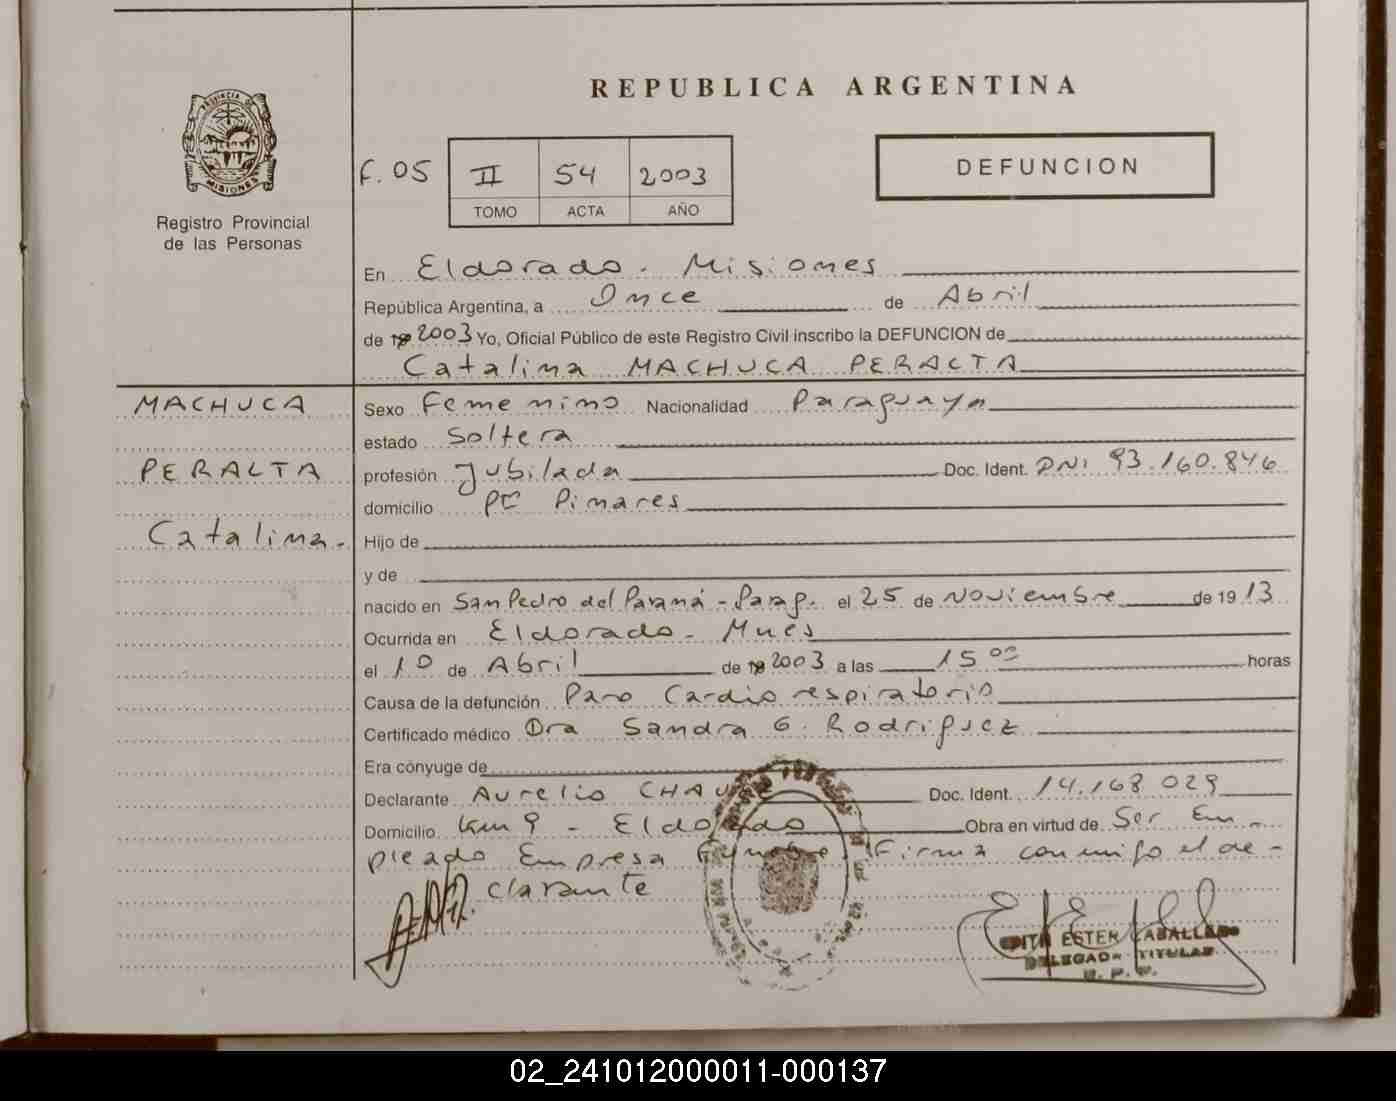 REPUBLICA ARGENTINA
PROVINCIA DE MISIONES
Registro Provincial
de las Personas
F. 05 II 54 2003
TOMO ACTA AÑO
DEFUNCION
En Eldorado - Misiones
República Argentina, a Once de Abril
de 19 2003 Yo, Oficial Público de este Registro Civil inscribo la DEFUNCION de
Catalina MACHUCA PERALTA
MACHUCA
PERALTA
Catalina.
Sexo Femenino Nacionalidad Paraguaya
estado Soltera
profesión Jubilada Doc. Ident. DNI 93.160.846
domicilio Pinares
Hijo de
y de
nacido en San Pedro del Paraná - Parag. el 25 de Noviembre de 19 13
Ocurrida en Eldorado - Mnes
el 10 de Abril de 19 2003 a las 15 00 horas
Causa de la defunción Paro Cardio respiratorio
Certificado médico Dra Sandra G. Rodriguez
Era cónyuge de
Declarante Aurelio Doc. Ident. 14.168.029
Domicilio Km 9 - Eldorado Obra en virtud de Ser Em-
pleado Empresa Fúnebre. Firma conmigo el de-
clarante
EDITH ESTER CABALLERO
DELEGADA TITULAR
R. P. P.
02_241012000011-000137